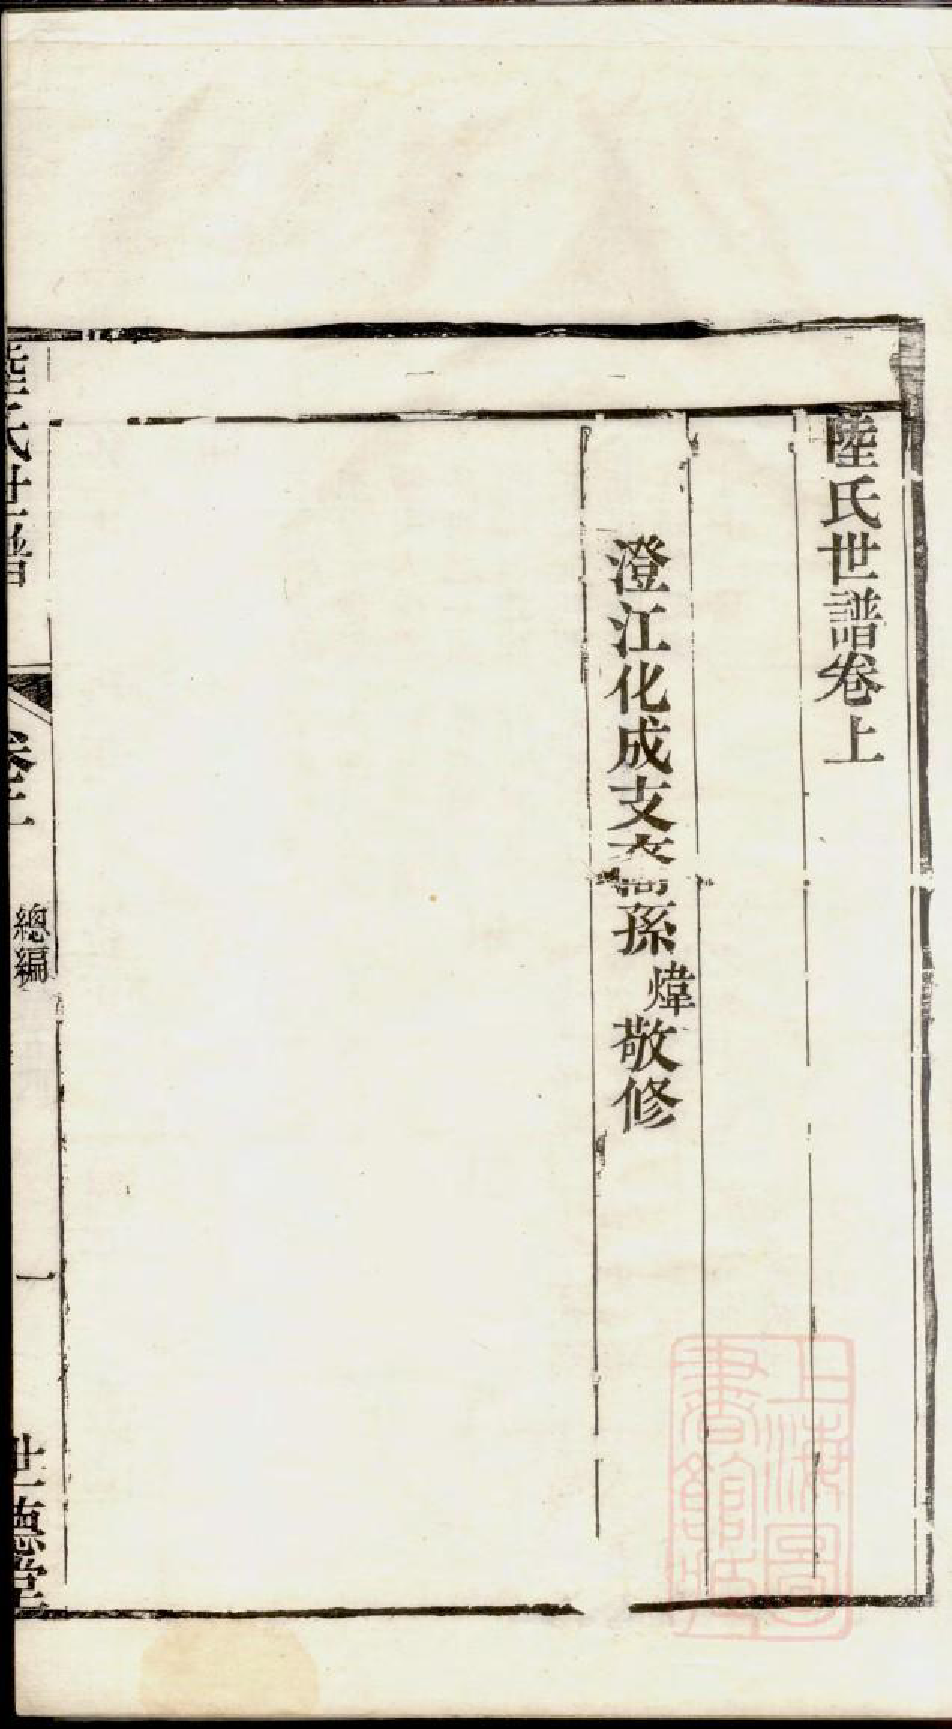 陸氏世譜卷上
澄江化成支裔孫煒敬修
陸氏世譜
卷上
總編
一
世德堂
上海圖書館藏